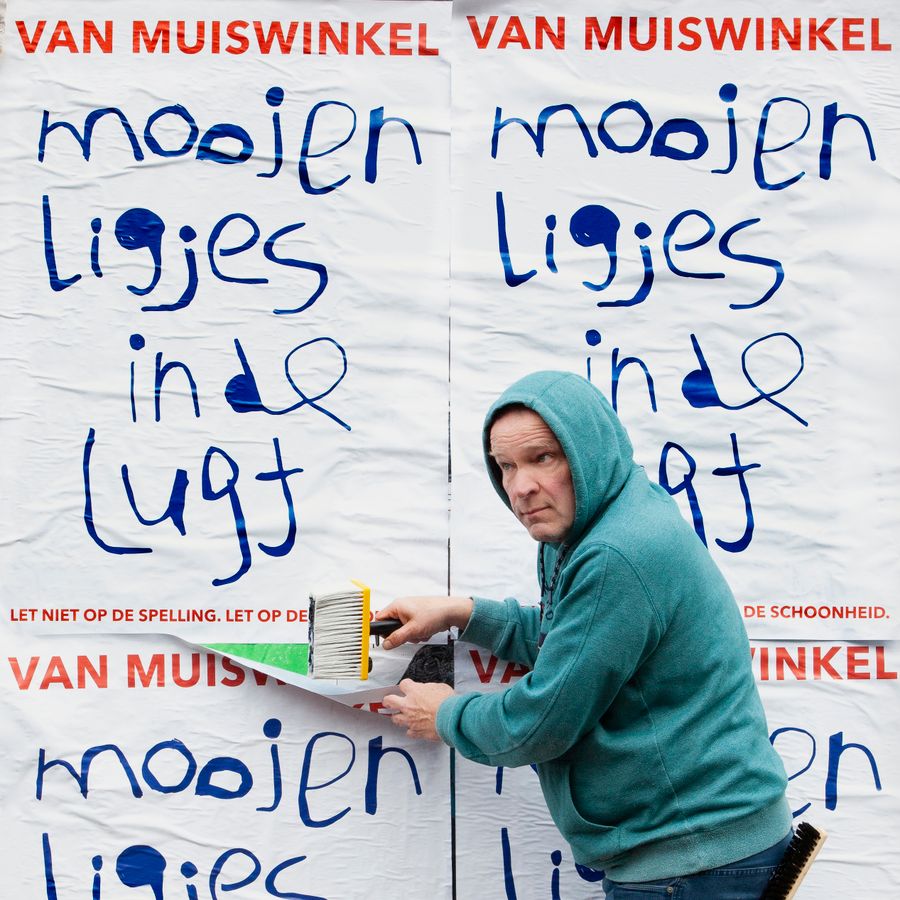 VAN MUISWINKEL
moojen
ligjes
in de
lugt
LET NIET OP DE SPELLING. LET OP DE
VAN MUISWINKEL
moojen
ligjes
in de
gt
DE SCHOONHEID.
VAN MUISWINKEL
moojen
ligjes
VA WINKEL
en